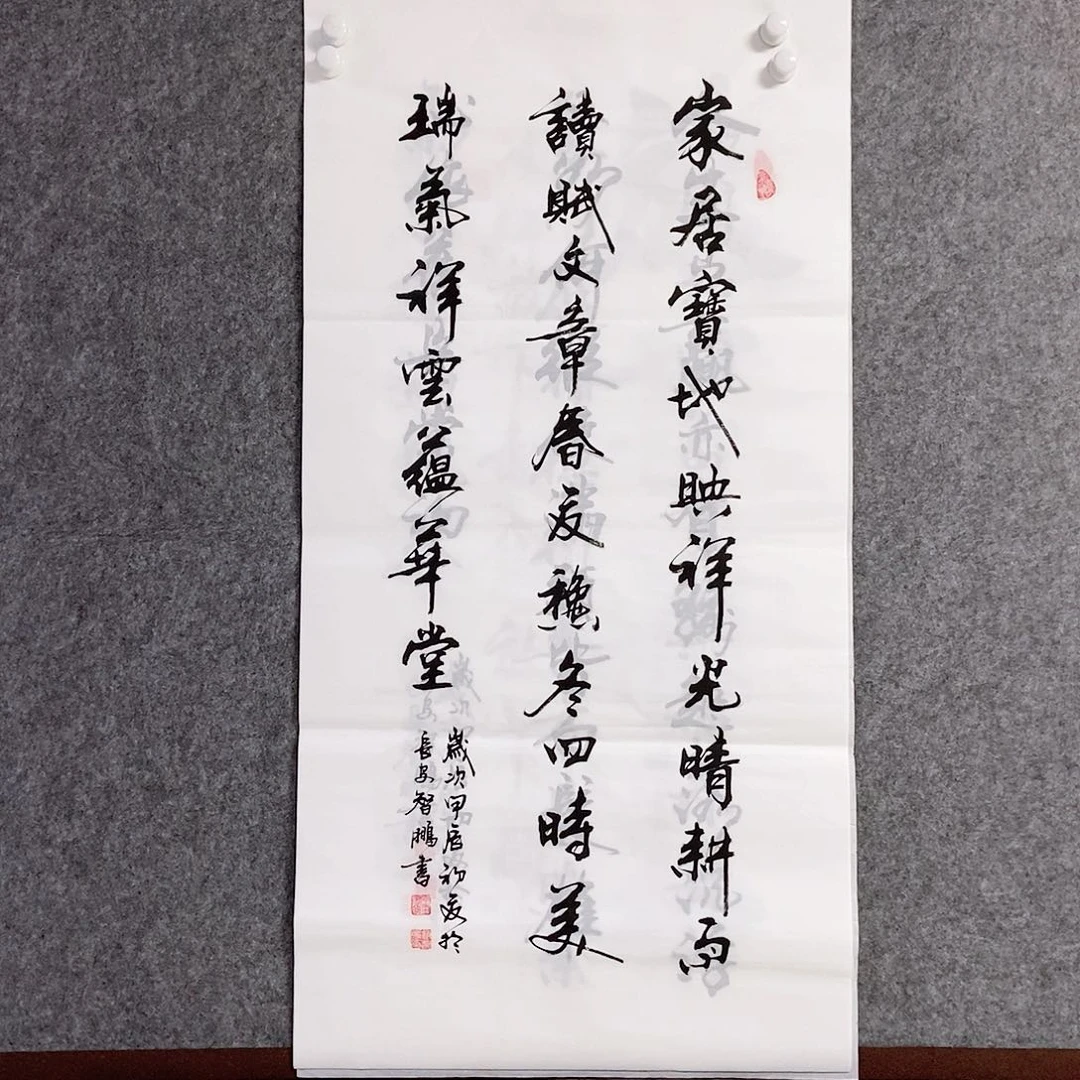 家居寶地映祥光晴耕雨
讀賦文章春夏穐冬四時美
瑞氣祥雲蘊華堂
歲次甲辰初夏於
長安智鵬書